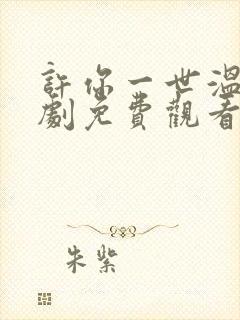 許你一世溫
劇免費觀看
朱紫